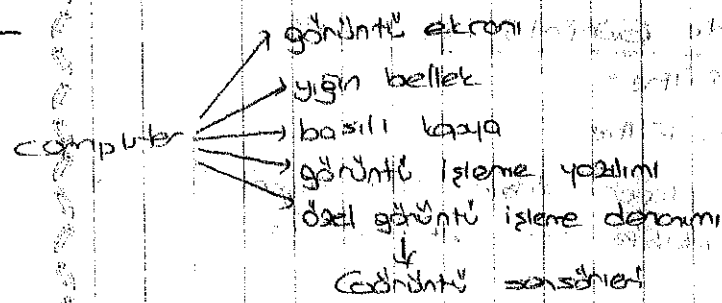 görüntü ekranı
yığın bellek
computer
basılı kopya
görüntü işleme yazılımı
özel görüntü işleme donanımı
Görüntü sensörleri